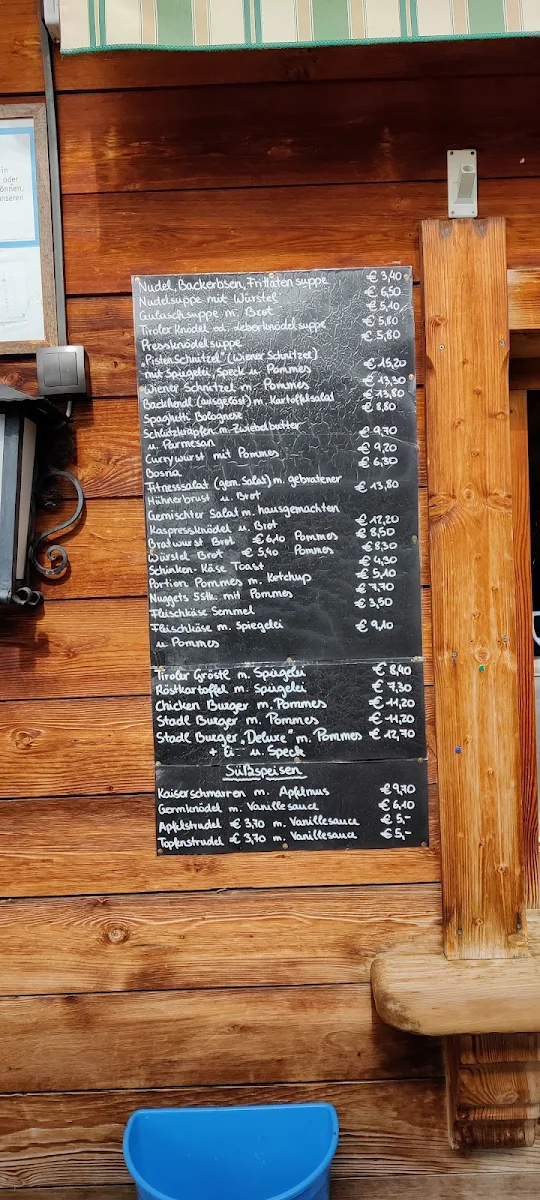 in
-oder
önnen,
unseren
Nudel, Backerbsen, Frittatensuppe € 3,40
Nudelsuppe mit Würstel € 6,50
Gulaschsuppe m. Brot € 5,10
Tiroler Knödel od. Leberknödelsuppe € 5,80
Pressknödelsuppe € 5,80
„Pistenschnitzel" (Wiener Schnitzel)
mit Spiegelei, Speck u. Pommes € 15,20
Wiener Schnitzel m. Pommes € 13,30
Backhendl (ausgelöst) m. Kartoffelsalad € 13,80
Spaghetti Bolognese € 8,80
Schlutzkrapfen m. Zwiebelbutter
u. Parmesan € 9,70
Currywurst mit Pommes € 9,20
Bosna € 6,30
Fitnesssalat (gem. Salat) m. gebratener
Hühnerbrust u. Brot € 13,80
Gemischter Salat m. hausgemachten
Kaspressknödel u. Brot € 12,20
Bratwurst Brot € 6,10 Pommes € 8,50
Würstel Brot € 5,40 Pommes € 8,30
Schinken-Käse Toast € 4,30
Portion Pommes m. Ketchup € 5,10
Nuggets 5Stk. mit Pommes € 7,70
Fleischkäse Semmel € 3,50
Fleischkäse m. Spiegelei € 9,10
u Pommes
Tiroler Gröstl m. Spiegelei € 8,40
Röstkartoffel m. Spiegelei € 7,30
Chicken Burger m. Pommes € 11,20
Stadl Burger m. Pommes € 11,20
Stadl Burger „Deluxe" m. Pommes € 12,70
+ Ei - u. Speck
Süßspeisen
Kaiserschmarren m. Apfelmus € 9,70
Germknödel m. Vanillesauce € 6,10
Apfelstrudel € 3,70 m. Vanillesauce € 5,-
Topfenstrudel € 3,70 m. Vanillesauce € 5,-